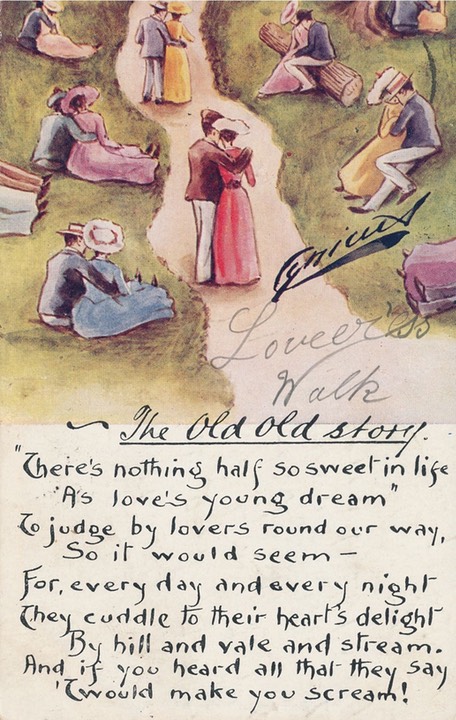 Cynicus
Loveer's
Walk
The Old Old story.
"There's nothing half so sweet in life
'As love's young dream"
To judge by lovers round our way,
So it would seem —
For, every day and every night
They cuddle to their heart's delight
By hill and vale and stream.
And if you heard all that they say
'Twould make you scream!